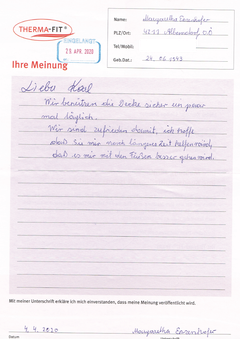 THERMA-FIT®
EINGELANGT
28. APR. 2020
Ihre Meinung
Name: Margaretha
PLZ/Ort: OÖ
Tel/Mobil:
Geb.Dat.:
Liebe
Wir benützen die Decke sicher ein paar
mal täglich.
Wir sind zufrieden damit, ich hoffe
daß Sie mir nach längerer Zeit helfen wird,
daß es mir mit den Füßen besser gehen wird.
Mit meiner Unterschrift erkläre ich mich einverstanden, dass meine Meinung veröffentlicht wird.
4. 4. 2020
Margaretha
Datum